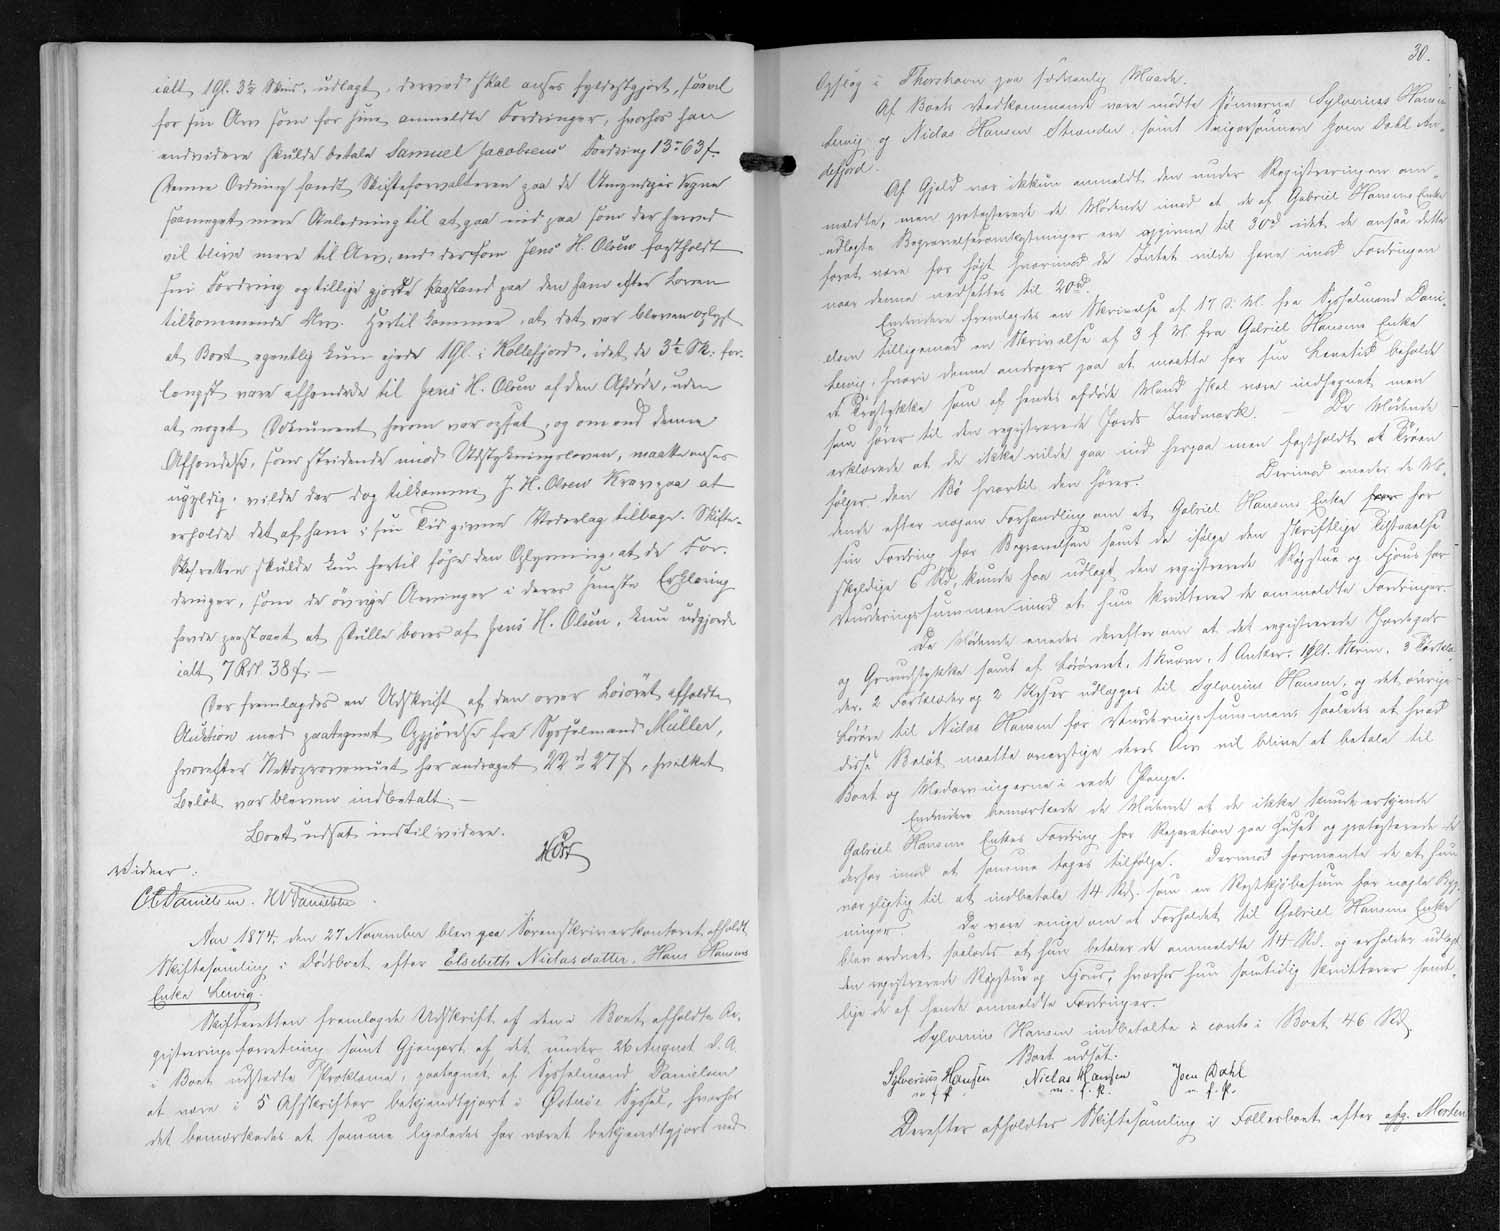 ialt 1 Gl. 3½ Skind, udlagt, derved skal anses fyldestgjort, saavel
for sin Arv som for sine anmeldte Fordringer, hvorhos han
endvidere skulde betale Samuel Jacobsens Fordring 13 - 63 f.
Denne Ordning fandt Skifteforvalteren paa de Umyndiges Vegne
saameget mere Anledning til at gaa ind paa som der herved
vil blive mere til Arv, end dersom Jens H. Olsen fastholdt
sin Fordring og tillige gjorde Paastand paa den ham efter Loven
tilkommende Arv. Hertil kommer, at det var bleven oplyst
at Boet egentlig kun ejede 1 Gl. i Kollefjord, idet de 3½ Sk: for-
længst vare afhændede til Jens H. Olsen af den Afdøde, uden
at noget Dokument herom var opsat, og om end denne
Afhændelse, som stridende imod Udstykningsloven, maatte anses
ugyldig, vilde der dog tilkomme J. H. Olsen Krav paa at
erholde det af ham i sin Tid givne Vederlag tilbage. Skifte-
Retten skulde kun hertil føje den Oplysning, at de For-
dringer, som de øvrige Arvinger i deres seneste Erklæring
havde paastaaet at skulle bæres af Jens H. Olsen, kun udgjorde
ialt 7 Rd. 38 f. —
Der fremlagdes en Udskrift af den over Løsøret afholdte
Auktion med paategnet Opgjørelse fra Sysselmand Müller,
hvorefter Nettoprovenuet har andraget 22 rd 27 f, hvilket
Beløb var bleven indbetalt. —
Boet udsat indtil videre.
Vidner:
C Danielsen. H V Danielsen.
Aar 1874, den 27 November blev paa Sorenskriverkontoret afholdt
Skiftesamling i Dødsboet efter Elsebeth Niclasdatter, Hans Hansens
Enke Lervig.
Skifteretten fremlagde Udskrift af den i Boet afholdte Re-
gistreringsforretning samt Gjenpart af det under 26 August d. A.
i Boet udstedte Proklama, paategnet af Sysselmand Danielsen
at være i 5 Afskrifter bekjendtgjort i Østerøe Syssel, hvorhos
det bemærkedes at samme ligeledes har været bekjendtgjort ved
30.
Opslag i Thorshavn paa sædvanlig Maade.
Af Boets Vedkommende vare mødte Sønnerne Sylverius Hansen
Lervig og Niclas Hansen Strander, samt Svigersønnen Joen Dahl An-
defjord.
Af Gjeld var ikkun anmeldt den under Registreringen an-
meldte, men protesterede de Mødende imod at de af Gabriel Hansens Enke
udlagte Begravelsesomkostninger ere opgivne til 30 rd idet de ansaa dette
forat være for højt, hvorimod de Intet vilde have imod Fordringen
naar denne nedsættes til 20 rd.
Endvidere fremlagdes en Skrivelse af 17 d. M. fra Sysselmand Dani-
elsen tilligemed en Skrivelse af 3 f. M. fra Gabriel Hansens Enke
Lervig, hvori denne andrager paa at maatte for sin Levetid beholde
et Trøstykke som af hendes afdøde Mand skal være indhegnet men
som hører til den registrerede Jords Indmark. — De Mødende
erklærede at de ikke vilde gaa ind herpaa men fastholdt at Trøen
følger den Bø hvortil den hører. Derimod enedes de Mø-
dende efter nogen Forhandling om at Gabriel Hansens Enke for
sin Fordring for Begravelsen samt de ifølge den skriftlige Tilstaaelse
skyldige 6 Rd, kunde faa udlagt den registrerede Røgstue og Fjøs for
Vurderingssummen imod at hun kvitterer de anmeldte Fordringer.
De Mødende enedes derefter om at det registrerede Jordegods
og Grundstykke samt af Løsøret, 1 Kværn, 1 Anker, 1 Skrin, 3
2 og 2 udlægges til Sylverius Hansen, og det øvrige
Løsøre til Niclas Hansen for Vurderingssummen, saaledes at hvad
disse Beløb maatte overstige deres Arv vil blive at betale til
Boet og Medarvingerne i rede Penge.
Endvidere bemærkede de Mødende at de ikke kunde erkjende
Gabriel Hansens Enkes Fordring for Reparation paa Huset og protesterede de
derfor imod at samme tages tilfølge. Derimod formente de at hun
var pligtig til at indbetale 14 Rd. som en Restkjøbesum for nogle Byg-
ninger. De vare enige om at Forholdet til Gabriel Hansens Enke
blev ordnet saaledes at hun betaler de anmeldte 14 Rd. og erholder udlagt
den registrerede Røgstue og Fjøs, hvorhos hun samtidig kvitterer samt-
lige de af hende anmeldte Fordringer.
Sylverius Hansen indbetalte à conto i Boet 46 Rd.
Boet udsat.
Sylverius Hansen Niclas Hansen Joen Dahl
m. f. P. m. f. P. m. f. P.
Derefter afholdtes Skiftesamling i Fællesboet efter afg. Morten